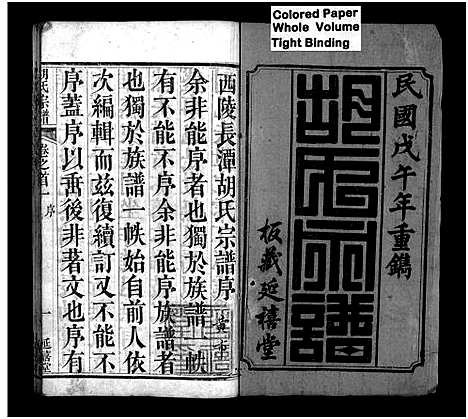 Colored Paper
Whole Volume
Tight Binding
民國戊午年重鐫
胡氏宗譜
板藏延禧堂
西陵長潭胡氏宗譜序
余非能序者也獨於族譜一帙
有不能不序余非能序族譜者
也獨於族譜一帙始自前人依
次編輯而兹復續訂又不能不
序蓋序以垂後非著文也序有
胡氏宗譜
卷之首
序
一
延禧堂